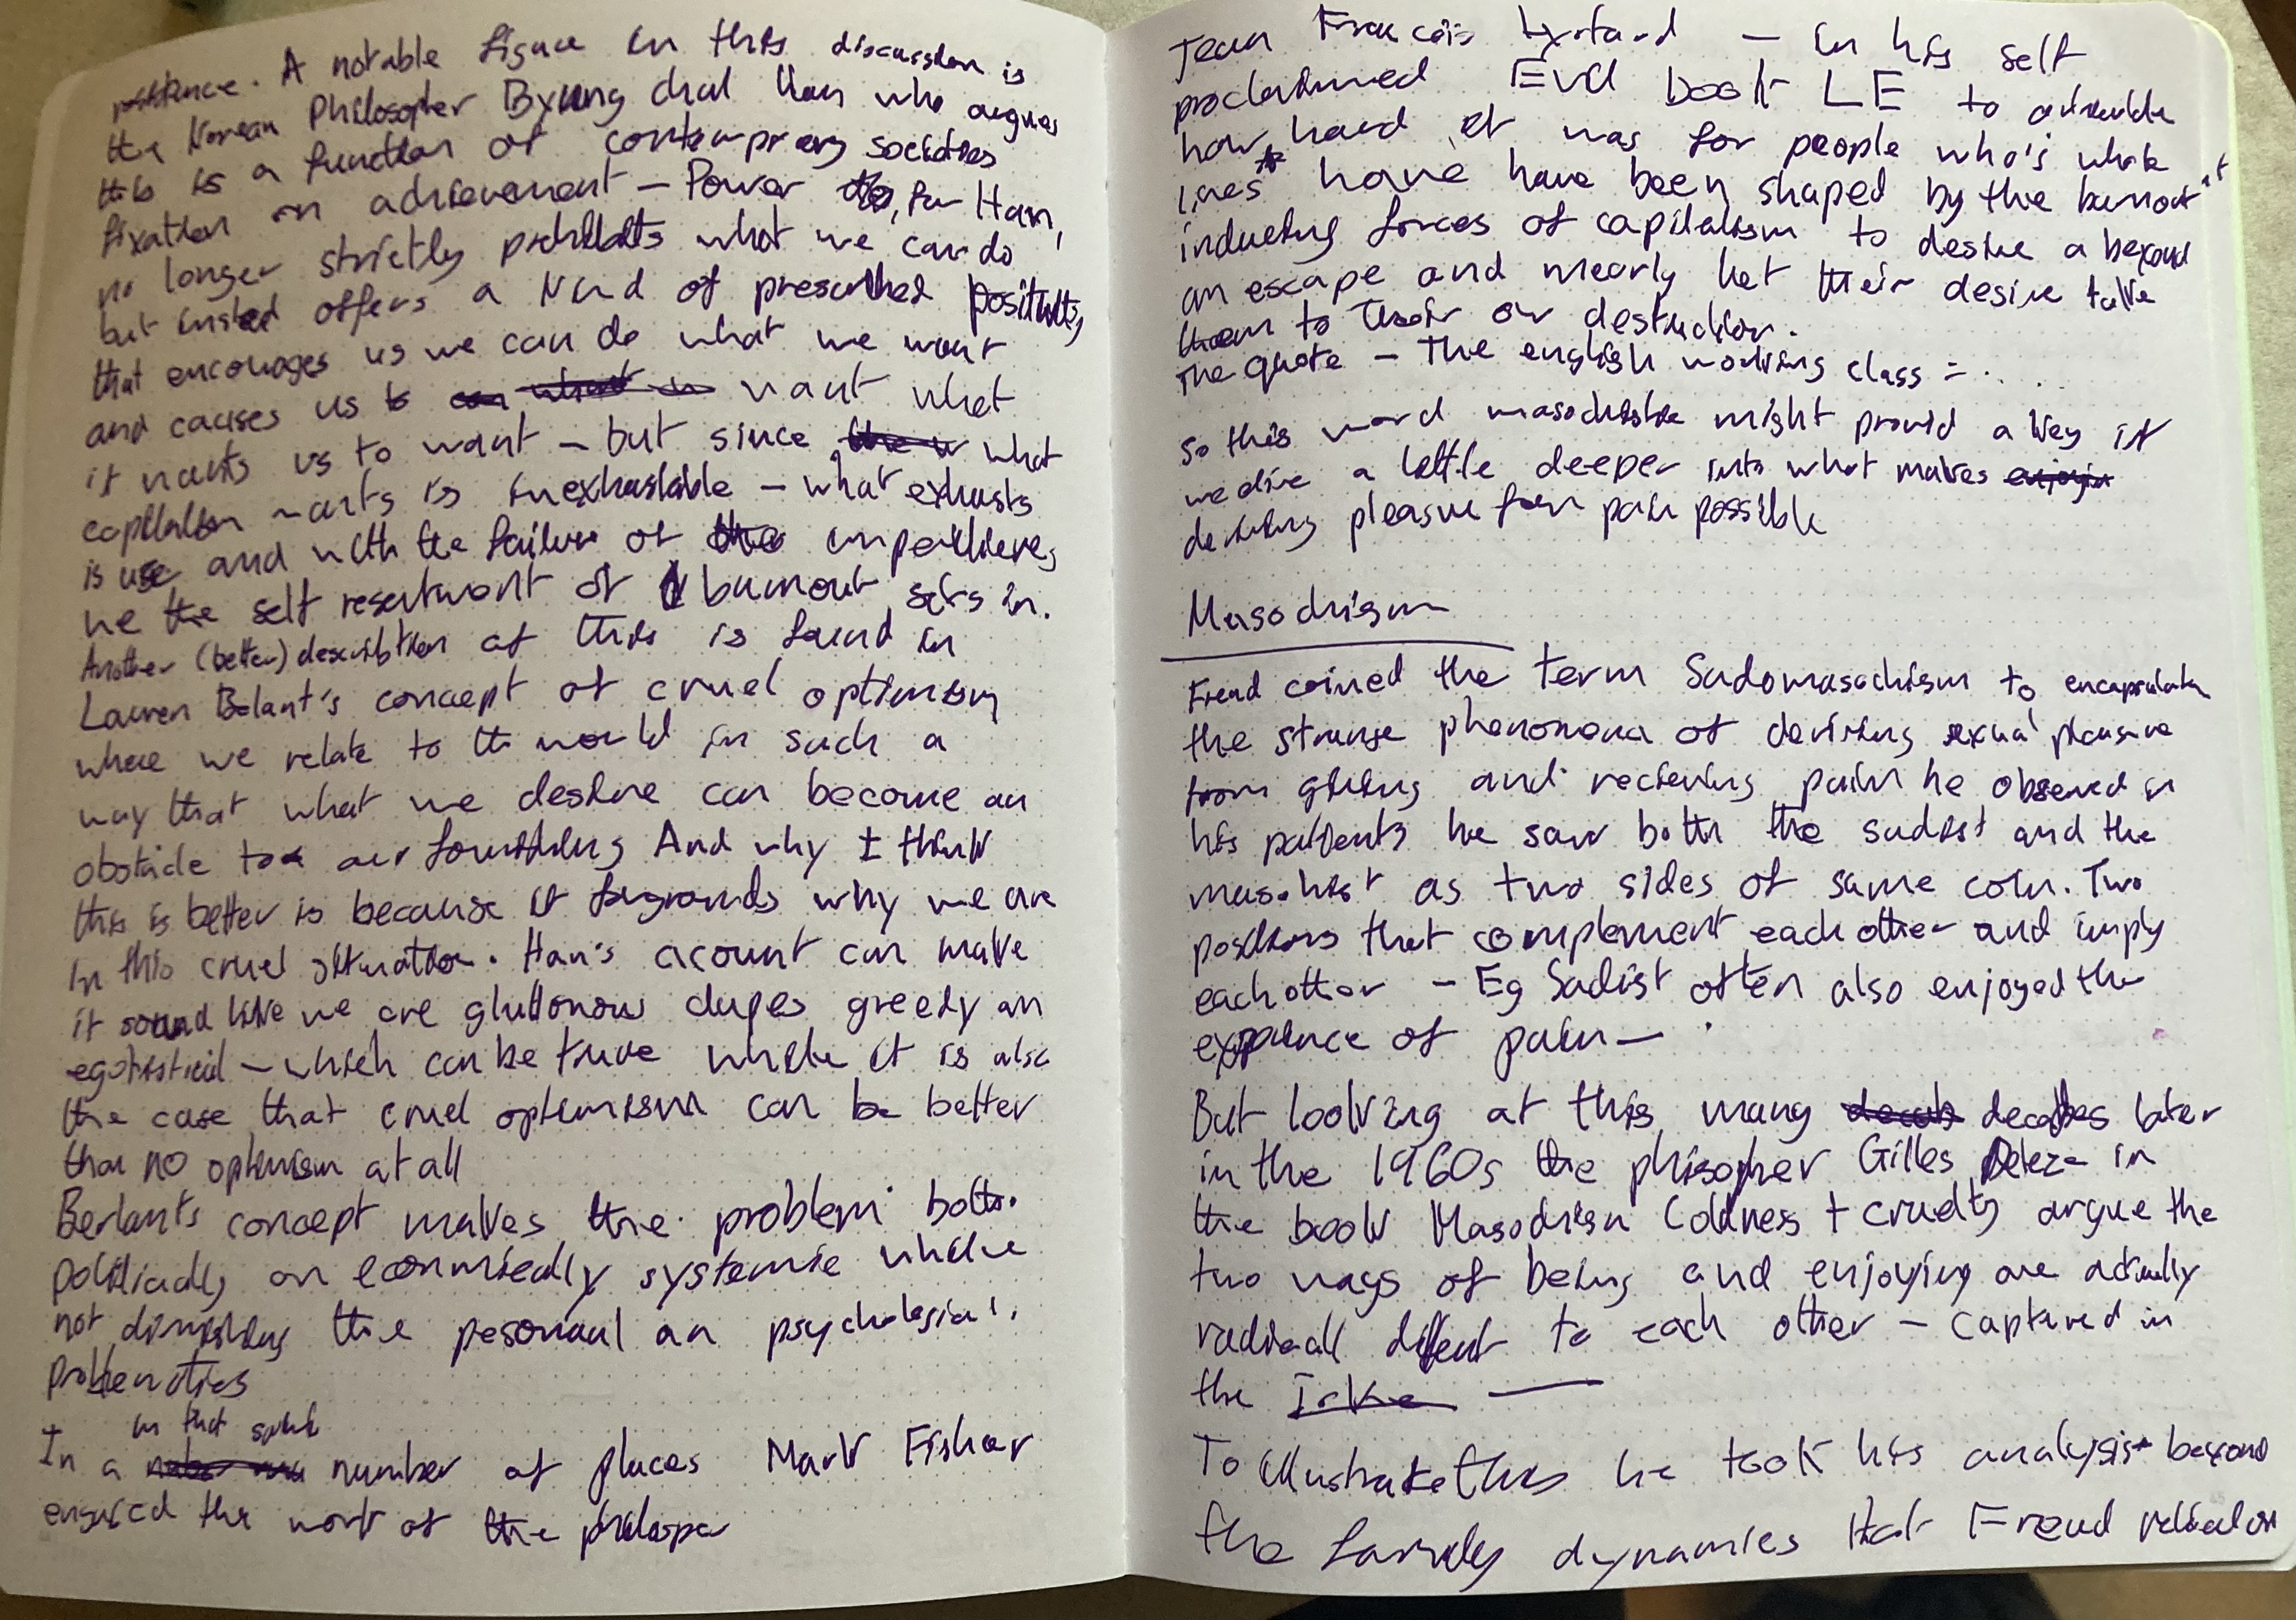 existence. A notable figure in this discussion is
the Korean Philosopher Byung chul Han who argues
this is a function of contemprary societies
fixation on achievement – Power , for Han,
no longer strictly prohibits what we can do
but insted offers a kind of prescribed positivity
that encourages us we can do what we want
and causes us to want what
it wants us to want – but since what
capitalism wants is inexhaustable – what exhusts
is us and with the failure of
we the self resentment of burnout sets in.
Another (better) describtion of this is found in
Lauren Belant's concept of cruel optimism
where we relate to the world in such a
way that what we desire can become an
obstacle to our flourishing And why I think
this is better is because it forgrounds why we are
in this cruel situation. Han's acount can make
it sound like we are gluttonous dupes greedy an
egotistical – which can be true while it is also
the case that cruel optimism can be better
than no optimism at all
Berlants concept makes the problem both
politically an econmically systemic while
not diminishing the pesonaul an psychological
problematics
in that spirit
In a number of places Mark Fisher
engaged the work of the philospher
Jean Francois Lyotard – in his self
proclaimed Evil book LE to articulate
how hard it was for people who's whole
lives have have been shaped by the burnout
inducting forces of capitalism to desire a beyond
an escape and mearly let their desire take
them to their own destruction.
The quote – The english working class = . . .
So this word masochistic might provid a key if
we dive a little deeper into what makes
deriving pleasure from pain possible
Masochism
Freud coined the term Sadomasochism to encapsulate
the strange phenomena of deriving sexual pleasure
from giving and recieving pain he observed in
his patients he saw both the sadist and the
masohist as two sides of same coin. Two
positions that complement each other and imply
each other – Eg Sadist often also enjoyed the
expience of pain –
But looking at this many decades later
in the 1960s the phisopher Gilles Deleze in
the book Masochism Coldness + cruelty argue the
two ways of being and enjoying are actually
radicall diffent to each other – captured in
the Joke —
To illustrate this he took his analysis beyond
the family dynamics that Freud relied on